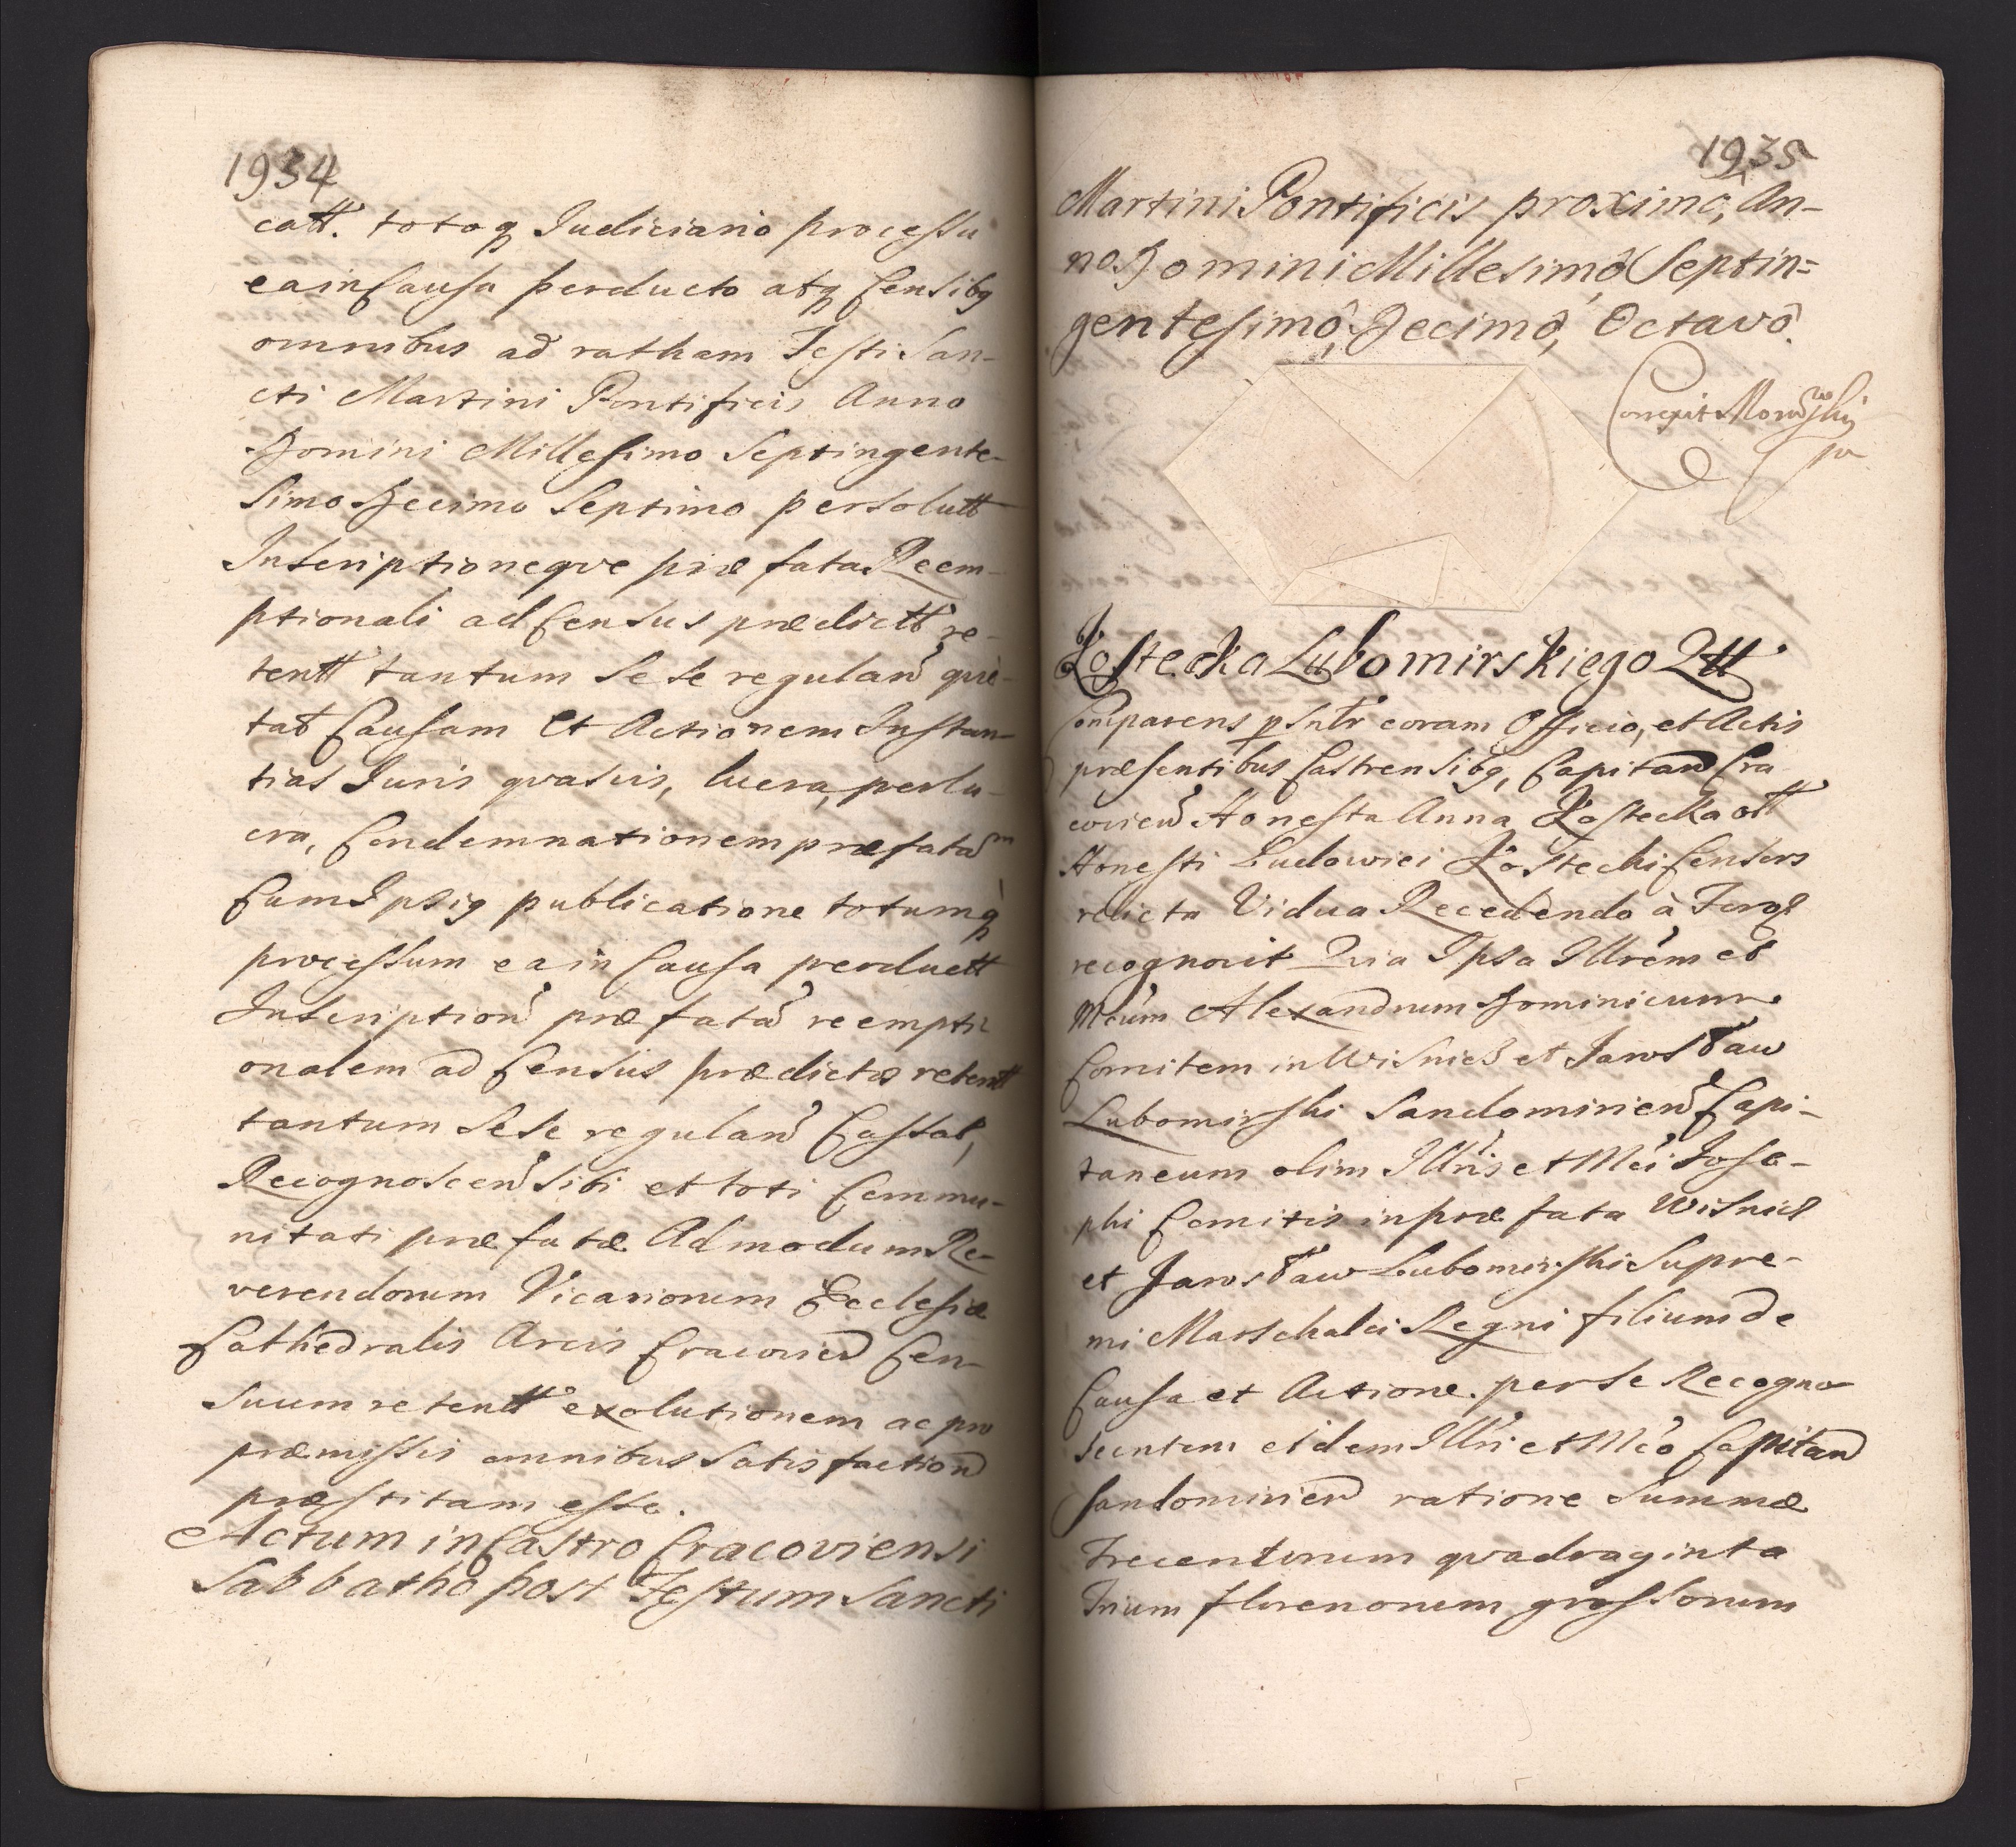 1934
catt. totoq Judiciario processu
ea in Causa perducto atq Censibq
omnibus ad ratham Festi San-
cti Martini Pontificis Anno
Domini Millesimo Septingente-
simo Decimo Septimo persolutt
Inscriptioneqve præfata Reem-
ptionali ad Census prædictt re-
tentt tantum sese regulan qvie-
tat Causam et Actionem Instan-
tias Juris qvasvis, lucra, perlu-
cra, Condemnationem præfatam
Cum Ipsiq publicatione totumq
processum ea in Causa perductt
Inscription præfatã reempti
onalem ad Census prædictos retentt
tantum sese regulan Cassat,
Recognoscen sibi et toti Commu-
nitati præfatæ Admodum Re-
verendorum Vicariorum Ecclesiæ
Cathedralis Arcis Cracovien Cen-
suum retentt exolutionem ac pro
præmissis omnibus Satisfaction
præstitam esse.
Actum in Castro Cracoviensi
Sabbatho post Festum Sancti
1935
Martini Pontificis proximô, An-
no Domini Millesimô Septin=
gentesimô, Decimô, Octavô.
Correxit
Kostecka Lubomirskiego Qtt
Comparens psnlr coram Officio, et Actis
præsentibus Castrensibq, Capitan Cra
covien Honesta Anna Kostecka ott
Honesti Ludowici Kostecki Consors
relicta Vidua Recedendo à Foro
recognovit Qvia Ipsa Illrem et
Mcum Alexandrum Dominicum
Comitem in Wisnicz et Jarosław
Lubomirski Sandomirien Capi-
taneum olim Illris et Mci Jose-
phi Comitis in præfata Wisnicz
et Jarosław Lubomirski Supre-
mi Marschalci Regni filium de
Causa et Actione per se Recogno
scentem eidem Illri et Mco Capitan
Sandomirien ratione Summæ
Trecentorum qvadraginta
Trium florenorum grossorum